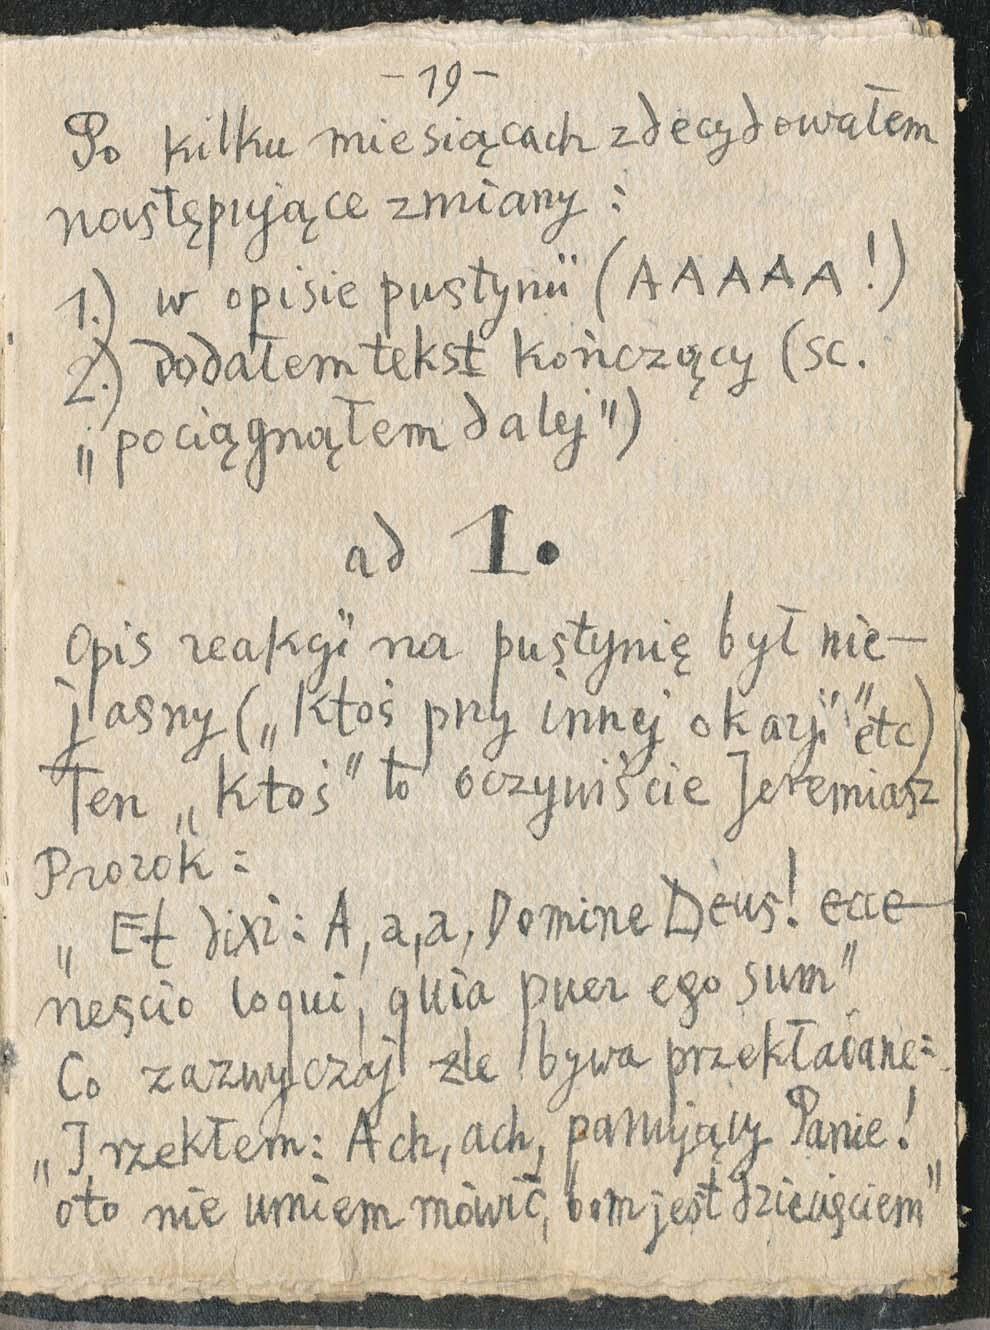 - 19 -
Po kilku miesiącach zdecydowałem
następujące zmiany :
1.) w opisie pustynii (AAAAA!)
2.) dodałem tekst kończący (sc.
„pociągnąłem dalej")
ad 1.
Opis reakcji na pustynię był nie-
jasny („ktoś przy innej okazji" etc)
Ten „ktoś" to oczywiście Jeremiasz
Prorok :
„Et dixi: A, a, a, Domine Deus! ecce
nescio loqui, quia puer ego sum"
Co zazwyczaj źle bywa przekładane:
„I rzekłem: Ach, ach, panujący Panie!
oto nie umiem mówić, bom jest dziecięciem"